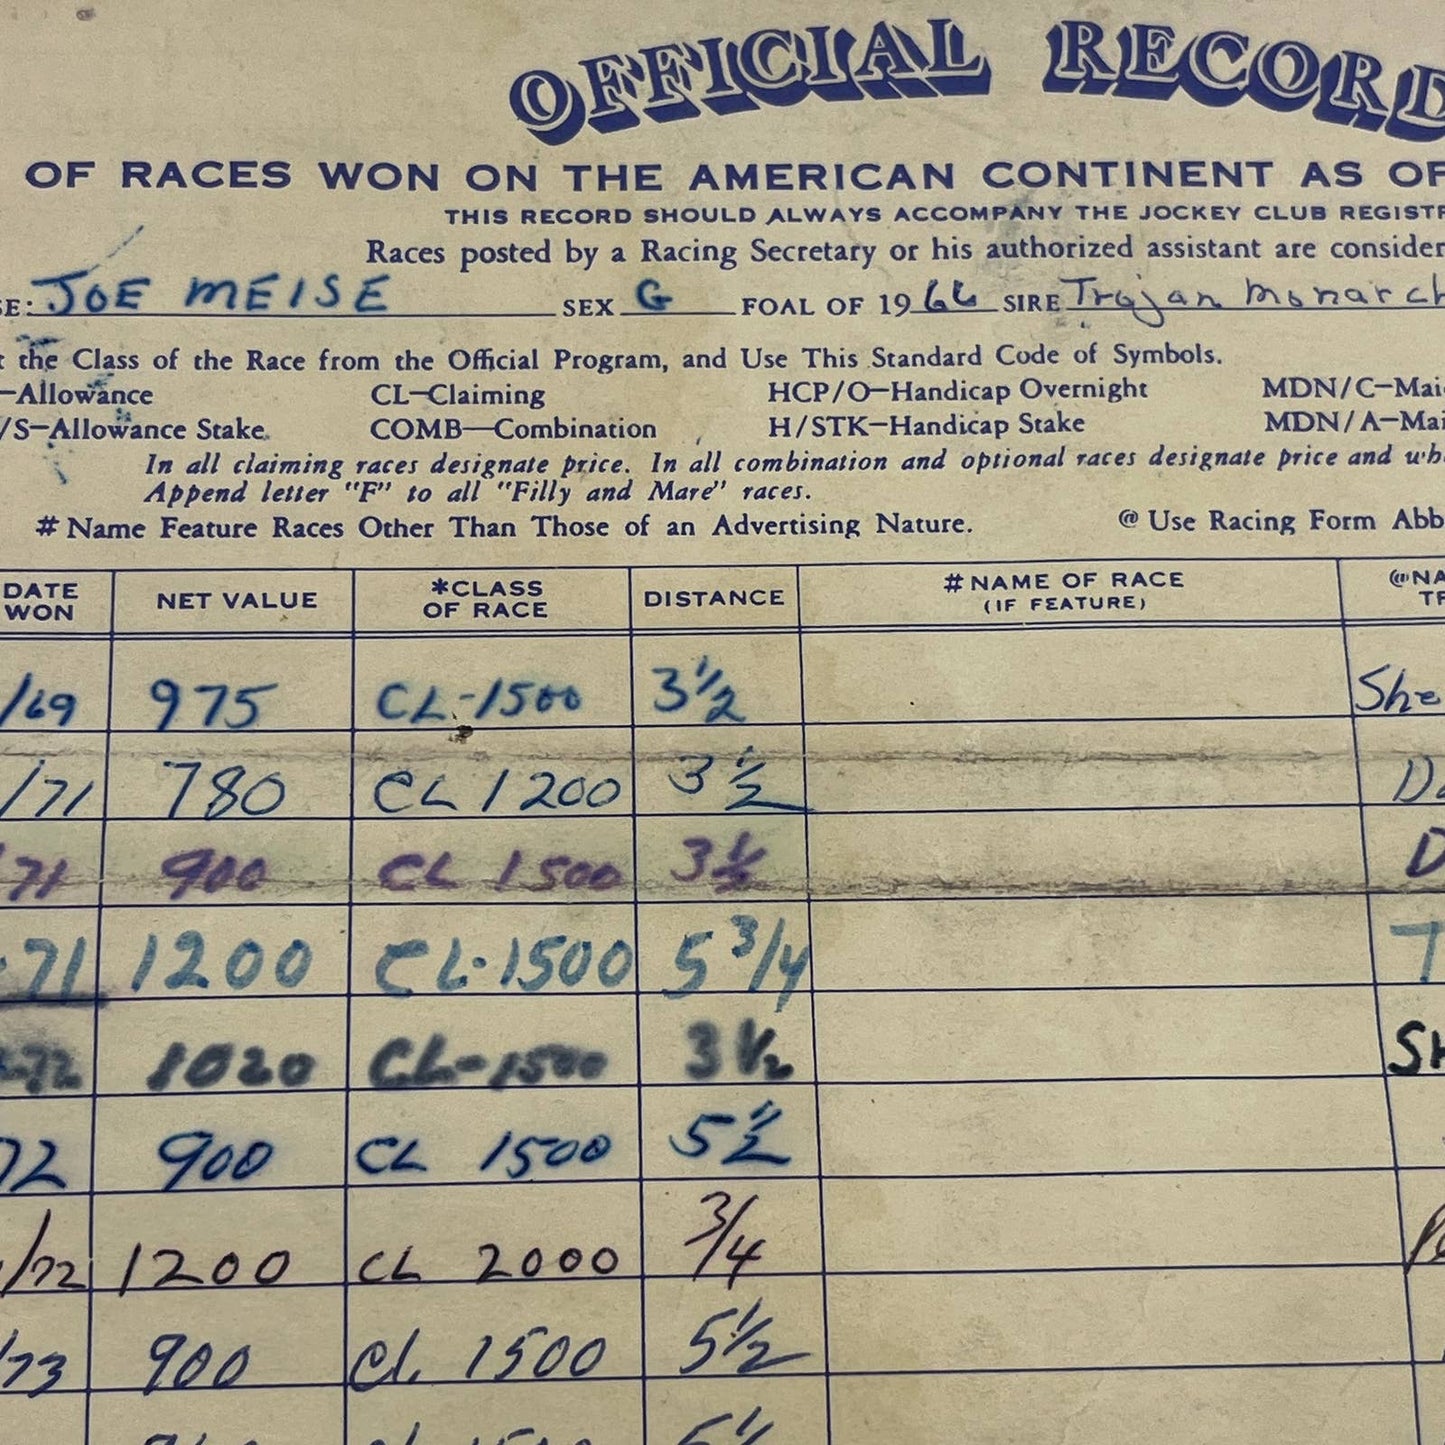 OFFICIAL RECORD
OF RACES WON ON THE AMERICAN CONTINENT AS OF
THIS RECORD SHOULD ALWAYS ACCOMPANY THE JOCKEY CLUB REGISTR
Races posted by a Racing Secretary or his authorized assistant are consider
SE: JOE MEISE SEX G FOAL OF 1966 SIRE Trojan Monarch
t the Class of the Race from the Official Program, and Use This Standard Code of Symbols.
—Allowance CL—Claiming HCP/O—Handicap Overnight MDN/C—Mai
/S—Allowance Stake COMB—Combination H/STK—Handicap Stake MDN/A—Mai
In all claiming races designate price. In all combination and optional races designate price and wh
Append letter "F" to all "Filly and Mare" races.
# Name Feature Races Other Than Those of an Advertising Nature. @ Use Racing Form Abb
DATE WON NET VALUE *CLASS OF RACE DISTANCE # NAME OF RACE (IF FEATURE) @NA TR
/69 975 CL-1500 3 1/2 She
/71 780 CL 1200 3 1/2 Da
/71 900 CL 1500 3 1/2 D
-71 1200 CL-1500 5 3/4 T
-72 1020 CL-1500 3 1/2 SH
72 900 CL 1500 5 1/2
/72 1200 CL 2000 3/4
/73 900 CL 1500 5 1/2
5 1/2